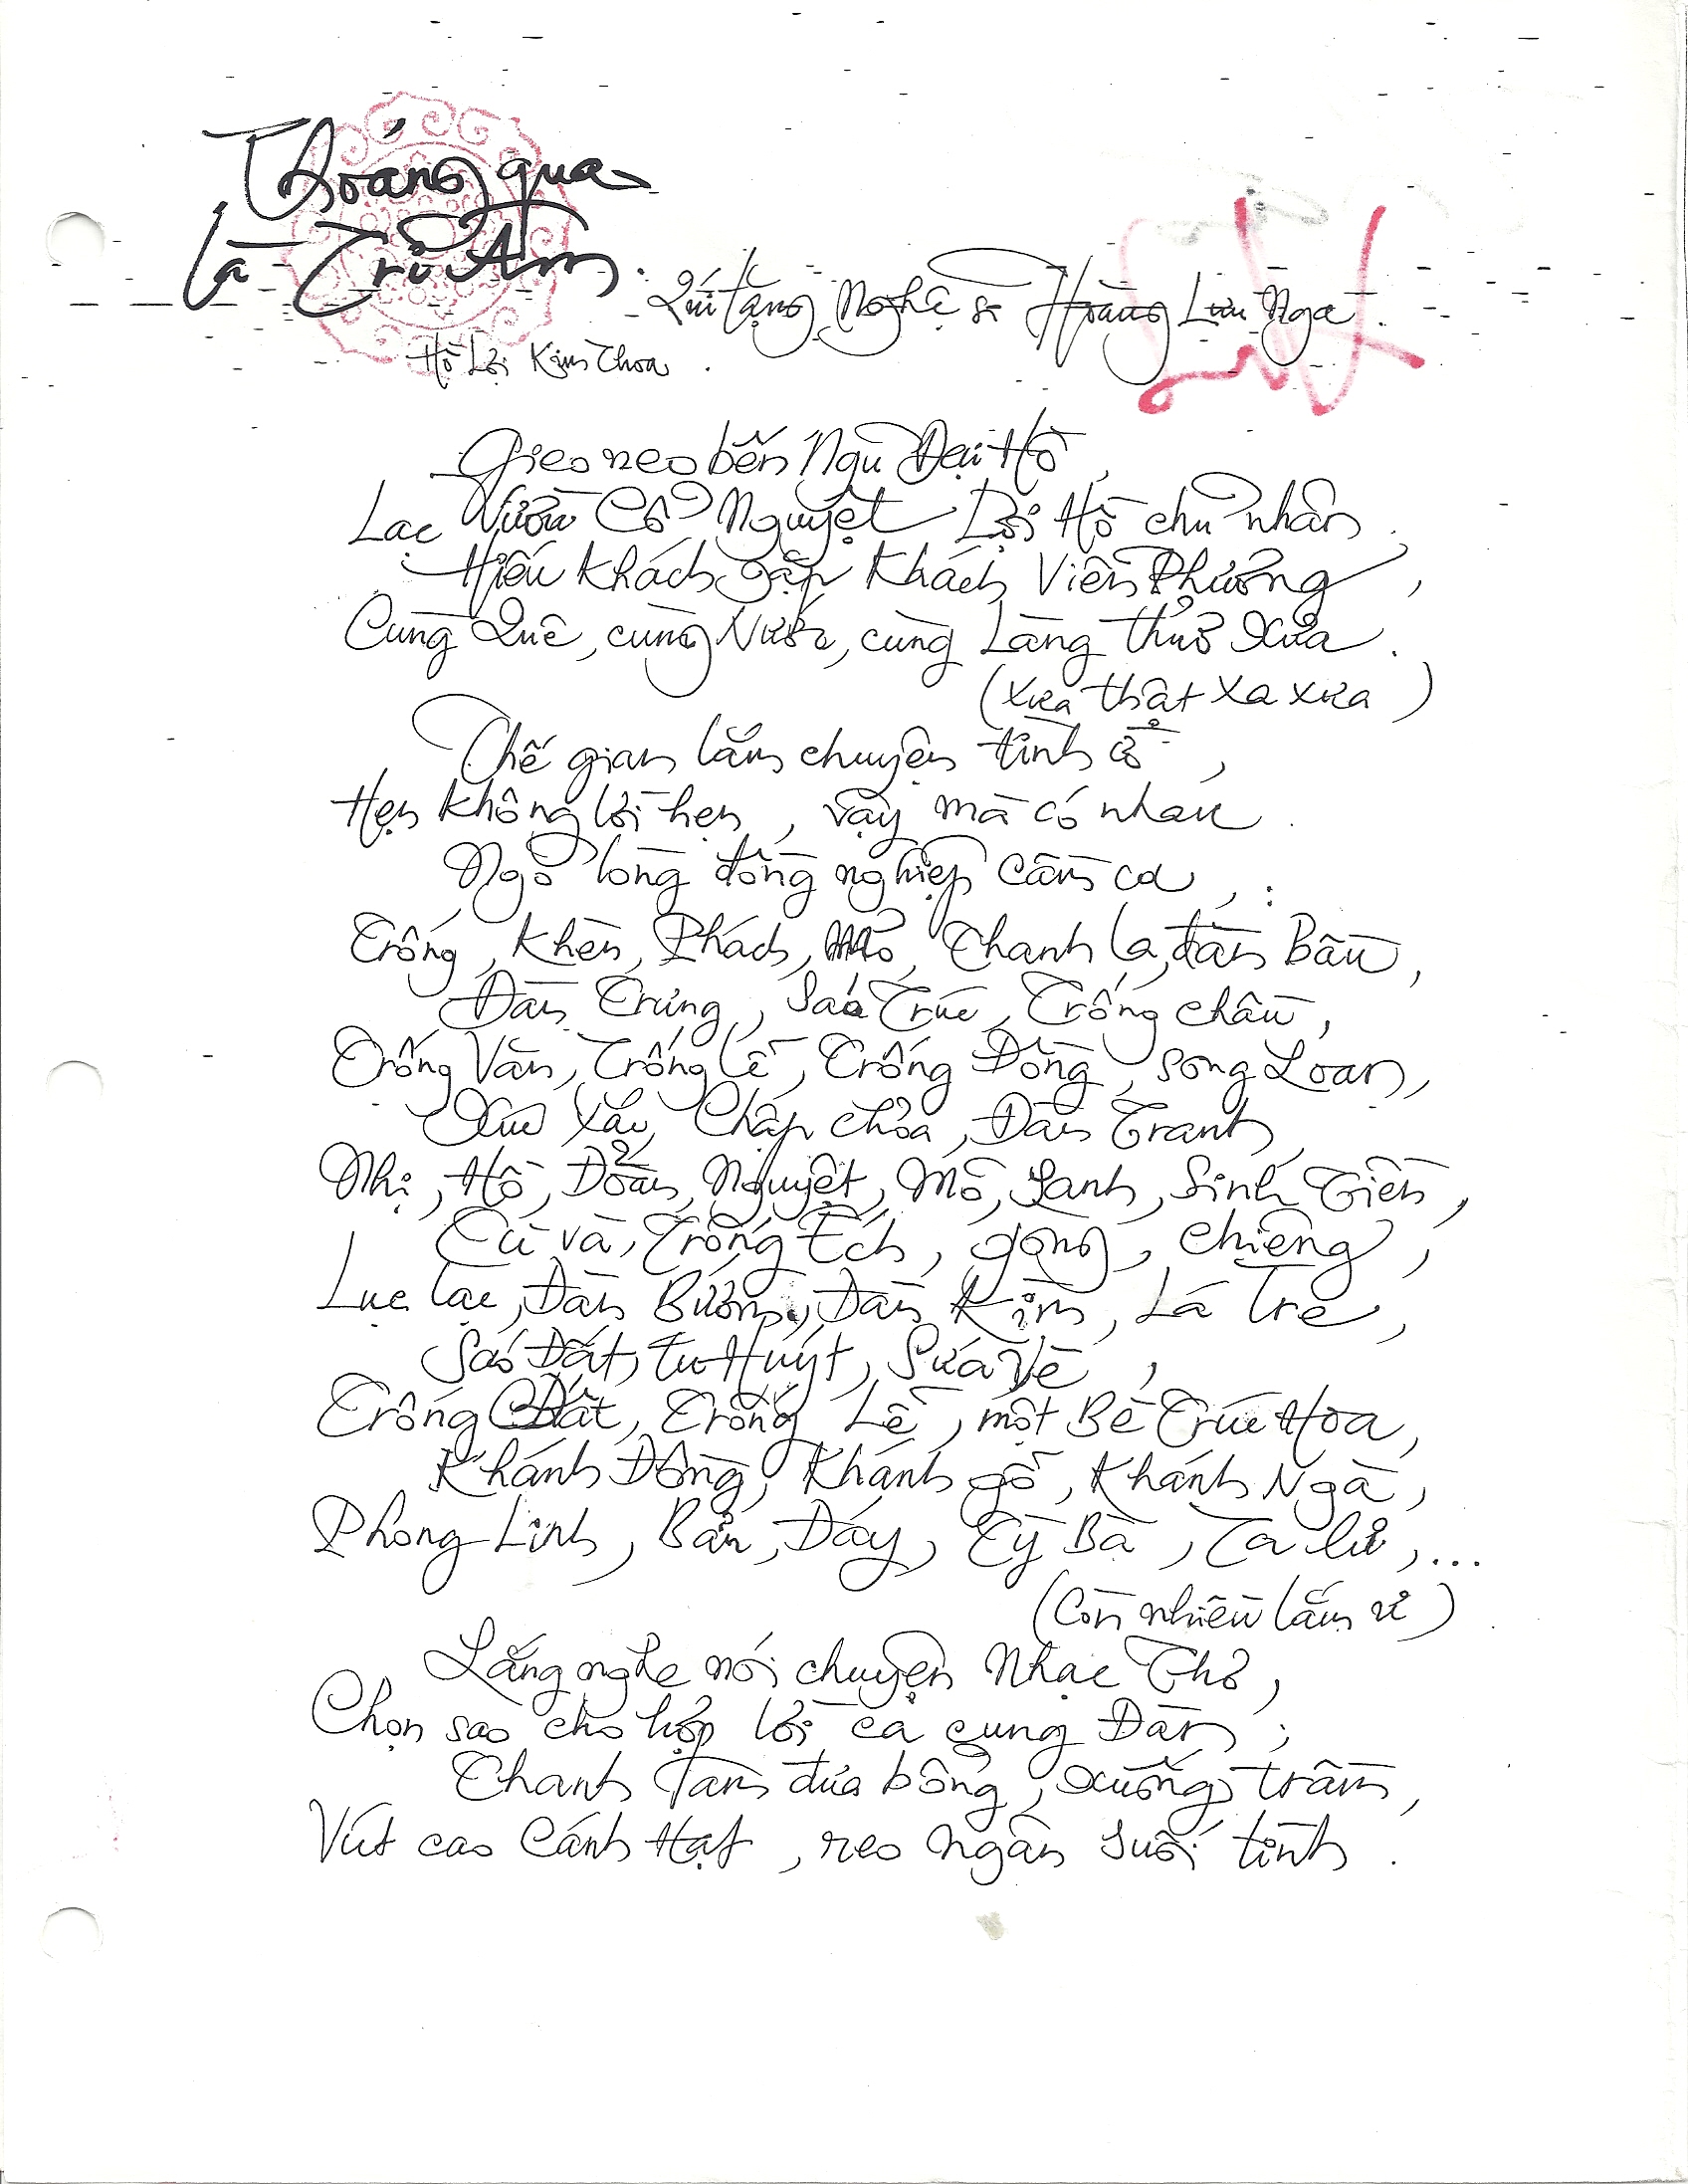 Thoáng qua
là Trữ Tình.
Quí tặng Nghệ sĩ Hoàng Lưu Nga.
Hồ Lợi Kim Thoa.
Gieo neo bến Ngũ Đại Hồ,
Lạc Vườn Cổ Nguyệt Lợi Hồ chủ nhân.
Hiếu khách gặp Khách Viễn Phương,
Cùng Quê, cùng Nước, cùng Làng thuở Xưa.
(Xưa thật xa xưa)
Thế gian lắm chuyện tình cờ,
Hẹn không lời hẹn, vậy mà có nhau.
Ngỏ lòng đồng nghiệp cầm ca, :
Trống, Khèn, Phách, Mõ, Thanh la, đàn Bầu,
Đàn Trưng, Sáo Trúc, Trống chầu,
Trống Văn, Trống Lễ, Trống Đồng, song Loan,
Xúc Xắc, Chập chỏa, Đàn Tranh,
Nhị, Hồ, Đoản, Nguyệt, Mõ, Sanh, Sinh Tiền,
Cù và, Trống Ếch, gọng, chiêng,
Lục lạc, Đàn Bướm, Đàn Kìm, Lá Tre,
Sáo Đất, Tu Huýt, Sứa Vè,
Trống Đất, Trống Lễ, một Bè Trúc Hoa,
Khánh Đồng, Khánh gỗ, Khánh Ngà,
Phong Linh, Bản, Đáy, Tỳ Bà, Ta lư,...
(Còn nhiều lắm ư)
Lắng nghe nói chuyện Nhạc Thơ,
Chọn sao cho hợp lời ca cung Đàn;
Thanh Tâm đưa bổng, xuống trầm,
Vút cao Cánh Hạt, reo ngàn suối tình.